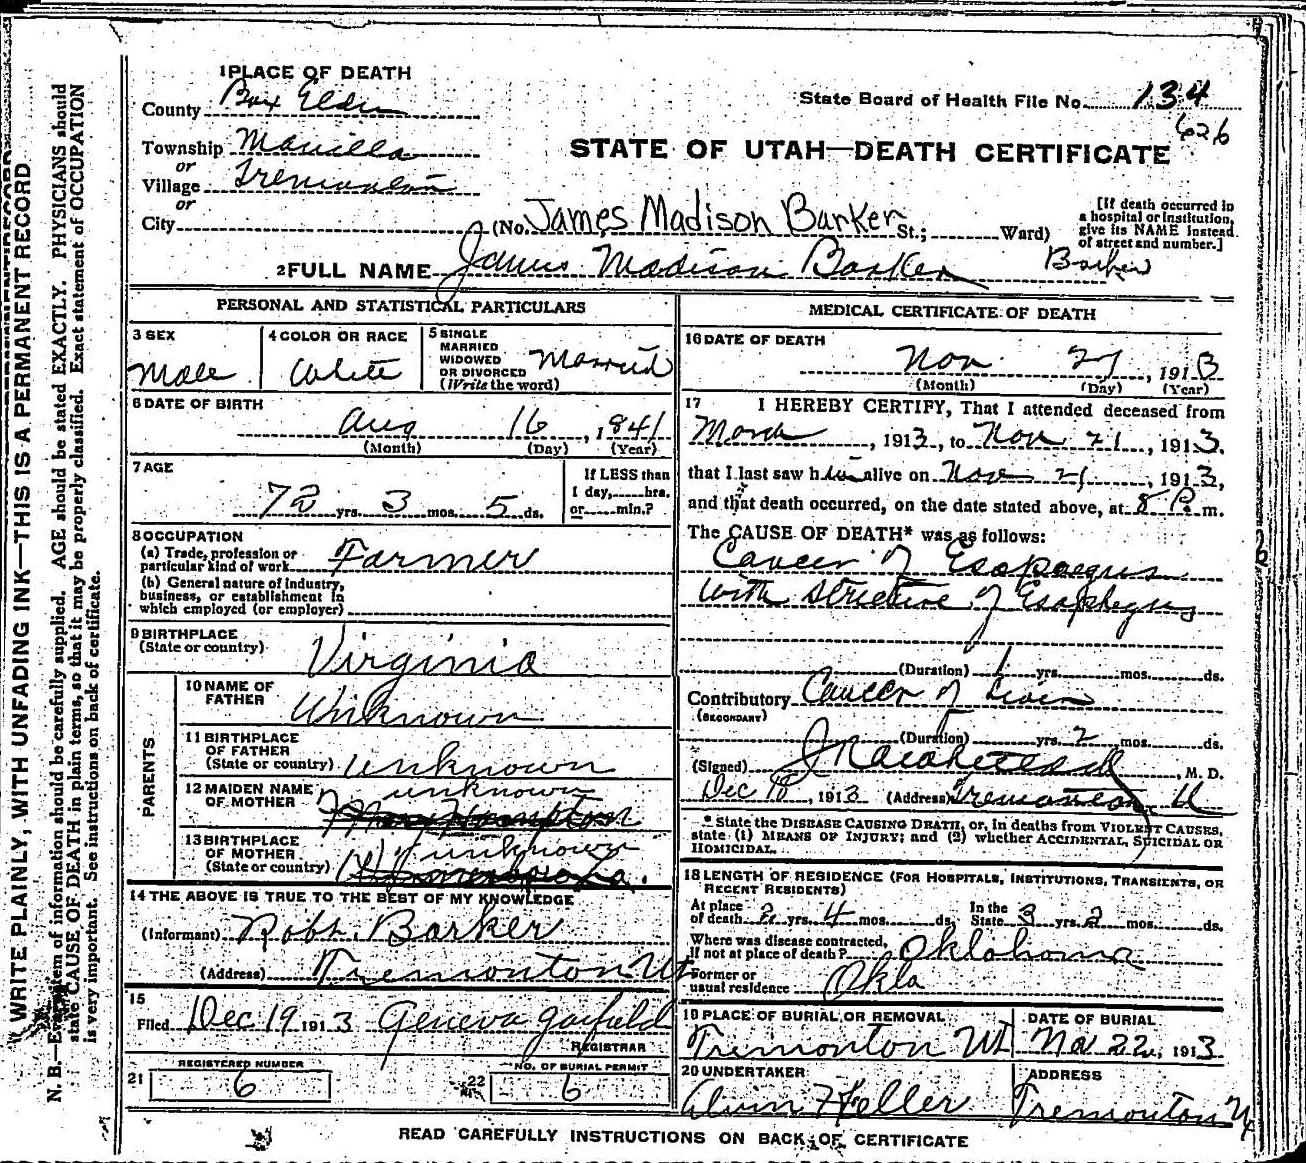 1 PLACE OF DEATH
County Box Elder
Township
or
Village Tremonton
or
City
State Board of Health File No. 134
626
STATE OF UTAH—DEATH CERTIFICATE
(No. James Madison Barker St.; Ward)
[If death occurred in
a hospital or institution,
give its NAME instead
of street and number.]
2 FULL NAME James Madison Barker Barker
PERSONAL AND STATISTICAL PARTICULARS
3 SEX
Male
4 COLOR OR RACE
White
5 SINGLE
MARRIED
WIDOWED
OR DIVORCED
(Write the word)
Married
6 DATE OF BIRTH
Aug 16, 1841
(Month) (Day) (Year)
7 AGE
72 yrs. 3 mos. 5 ds.
If LESS than
1 day, hrs.
or min.?
8 OCCUPATION
(a) Trade, profession or
particular kind of work Farmer
(b) General nature of industry,
business, or establishment in
which employed (or employer)
9 BIRTHPLACE
(State or country)
Virginia
PARENTS
10 NAME OF
FATHER
Unknown
11 BIRTHPLACE
OF FATHER
(State or country) Unknown
12 MAIDEN NAME
OF MOTHER
unknown
13 BIRTHPLACE
OF MOTHER
(State or country)
unknown
14 THE ABOVE IS TRUE TO THE BEST OF MY KNOWLEDGE
(Informant) Robt. Barker
(Address) Tremonton Ut
15
Filed Dec 19 1913 Geneva Garfield
REGISTRAR
REGISTERED NUMBER
21 6
NO. OF BURIAL PERMIT
22 6
MEDICAL CERTIFICATE OF DEATH
16 DATE OF DEATH
Nov 21, 1913
(Month) (Day) (Year)
17 I HEREBY CERTIFY, That I attended deceased from
March, 1913, to Nov 21, 1913.
that I last saw him alive on Nov 21, 1913,
and that death occurred, on the date stated above, at 8 P. m.
The CAUSE OF DEATH* was as follows:
Cancer of Esopaegus
with stricture of Esophegus
(Duration) 1 yrs. mos. ds.
Contributory Cancer of Liver
(SECONDARY)
(Duration) yrs. 2 mos. ds.
(Signed) , M. D.
Dec 10, 1913 (Address) Tremonton U
* State the DISEASE CAUSING DEATH, or, in deaths from VIOLENT CAUSES,
state (1) MEANS OF INJURY; and (2) whether ACCIDENTAL, SUICIDAL OR
HOMICIDAL.
18 LENGTH OF RESIDENCE (FOR HOSPITALS, INSTITUTIONS, TRANSIENTS, OR
RECENT RESIDENTS)
At place
of death 2 yrs. 4 mos. ds. In the
State 3 yrs. 2 mos. ds.
Where was disease contracted,
if not at place of death? Oklahoma
Former or
usual residence Okla
19 PLACE OF BURIAL OR REMOVAL
Tremonton Ut
DATE OF BURIAL
Nov 22, 1913
20 UNDERTAKER
Alvin Keller
ADDRESS
Tremonton U
READ CAREFULLY INSTRUCTIONS ON BACK OF CERTIFICATE
WRITE PLAINLY, WITH UNFADING INK—THIS IS A PERMANENT RECORD
N. B.—Every item of information should be carefully supplied. AGE should be stated EXACTLY. PHYSICIANS should
state CAUSE OF DEATH in plain terms, so that it may be properly classified. Exact statement of OCCUPATION
is very important. See instructions on back of certificate.